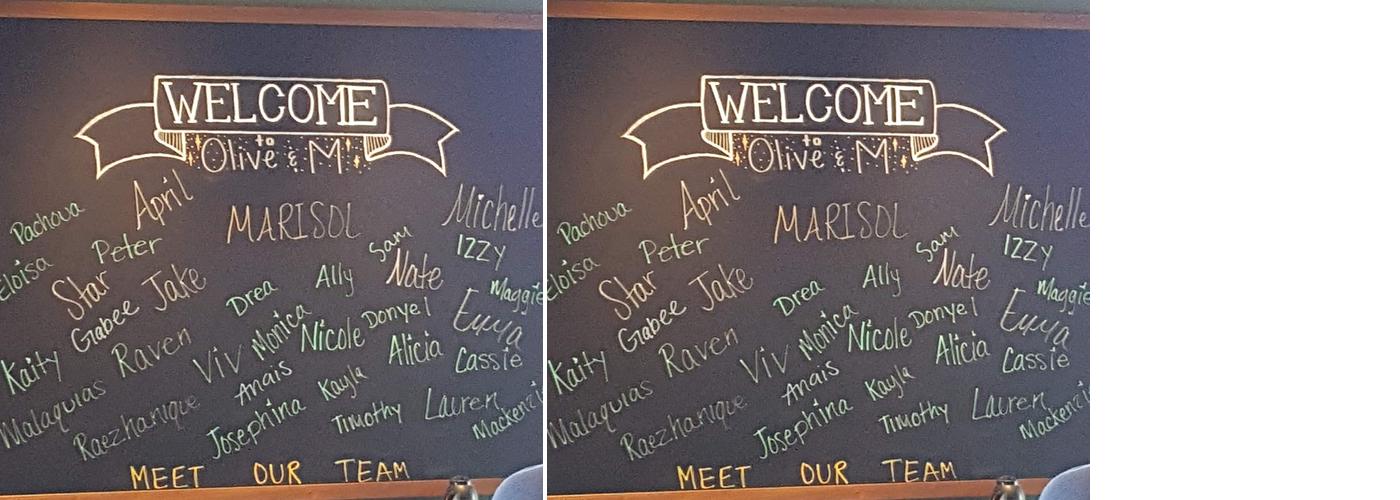 WELCOME
to
Olive & M
April
Michelle
Pachova
MARISOL
Peter
Sam
IZZY
Eloisa
Star
Jake
Ally
Nate
Drea
Maggie
Gabee
Monica
Donyel
Emma
Raven
Nicole
Kaity
Viv
Alicia
Cassie
Anais
Kayla
Malaquias
Raezhanique
Josephina
Timothy
Lauren
MEET OUR TEAM
WELCOME
to
Olive & M
April
Michelle
Pachova
MARISOL
Peter
Sam
IZZY
Eloisa
Star
Jake
Ally
Nate
Drea
Maggie
Gabee
Monica
Donyel
Emma
Raven
Nicole
Kaity
Viv
Alicia
Cassie
Anais
Kayla
Malaquias
Raezhanique
Josephina
Timothy
Lauren
MEET OUR TEAM